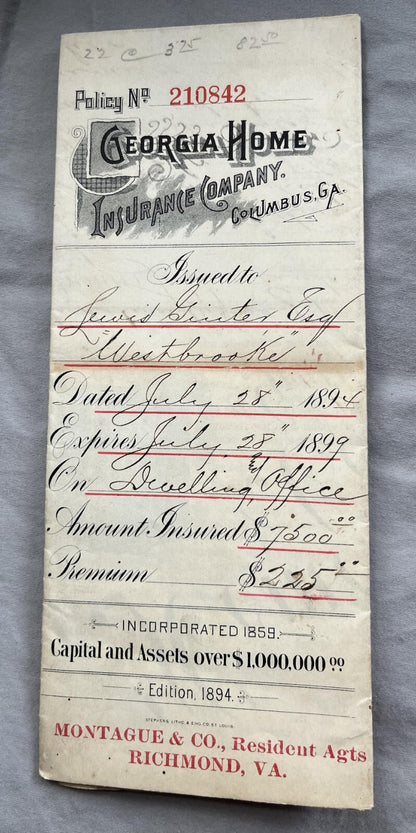 22 @ 375 82.50
Policy Nº 210842
GEORGIA HOME
INSURANCE COMPANY.
COLUMBUS, GA.
Issued to
Lewis Ginter Esq
"Westbrooke"
Dated July 28" 1894
Expires July 28" 1899
On Dwelling & Office
Amount Insured $ 7500 00
Premium $ 225 00
INCORPORATED 1859.
Capital and Assets over $1,000,000 00
Edition, 1894.
STEPHENS LITHO. & ENG. CO. ST. LOUIS.
MONTAGUE & CO., Resident Agts
RICHMOND, VA.